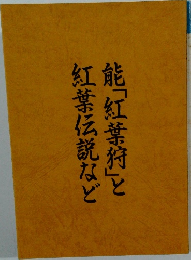 能「紅葉狩」と
紅葉伝説など